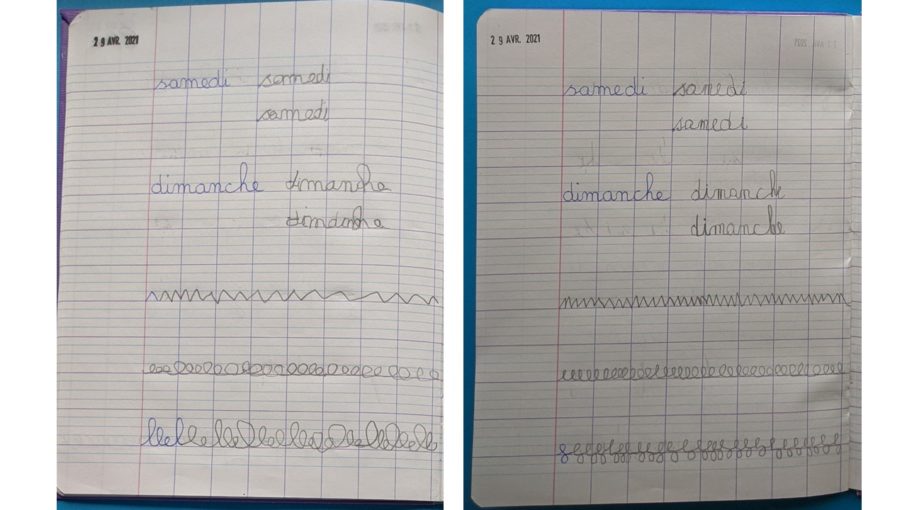 29 AVR. 2021
samedi samedi
samedi
dimanche dimanche
dimanche
29 AVR. 2021
samedi samedi
samedi
dimanche dimanche
dimanche